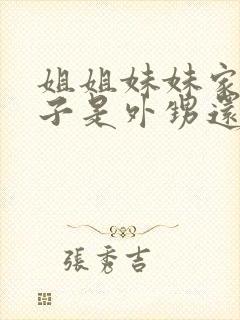 姐姐妹妹家
子是外甥還
張秀吉